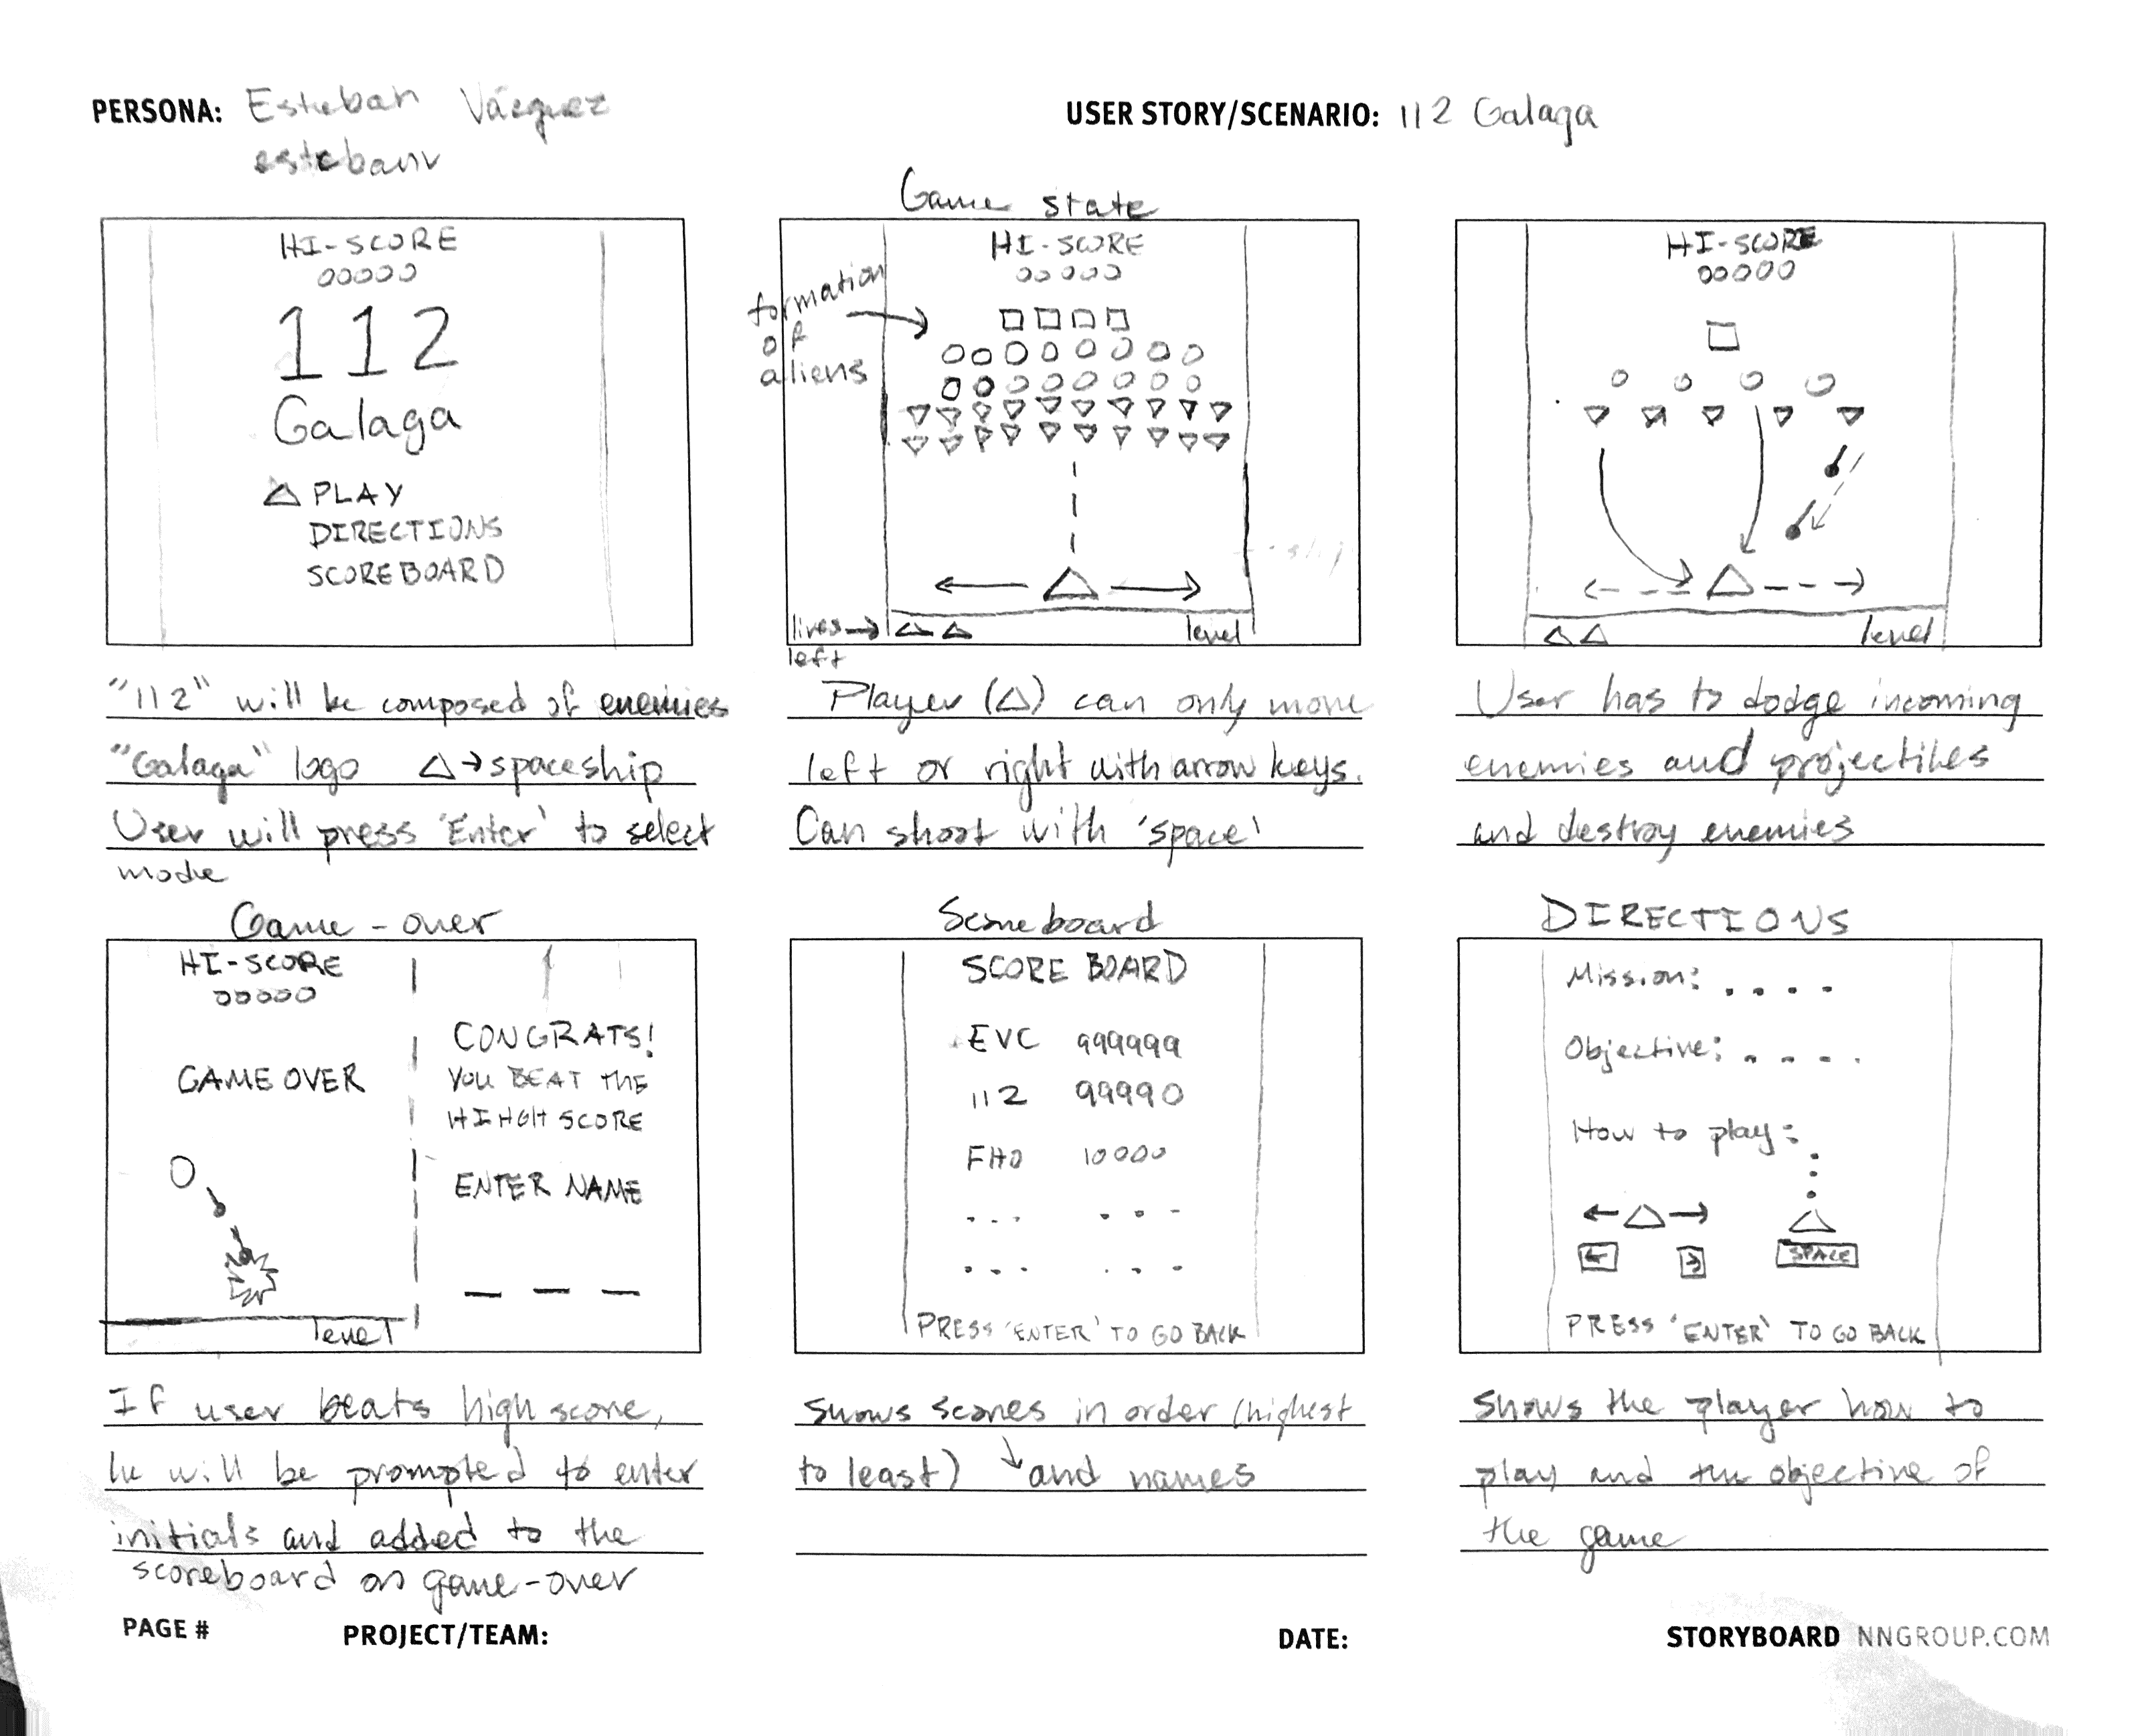 PERSONA: Esteban Vázquez
estebanv
USER STORY/SCENARIO: 112 Galaga
HI-SCORE
00000
112
Galaga
PLAY
DIRECTIONS
SCOREBOARD
"112" will be composed of enemies
"Galaga" logo △→spaceship
User will press 'Enter' to select
mode
Game state
HI-SCORE
00000
formation
of
aliens
lives→
left
level
Player (△) can only move
left or right with arrow keys.
Can shoot with 'space'
HI-SCORE
00000
level
User has to dodge incoming
enemies and projectiles
and destroy enemies
Game-over
HI-SCORE
00000
GAME OVER
level
CONGRATS!
YOU BEAT THE
HIHGH SCORE
ENTER NAME
If user beats high score,
he will be prompted to enter
initials and added to the
scoreboard on game-over
Scoreboard
SCORE BOARD
EVC 999999
112 99990
FHO 10000
... ...
... ...
PRESS 'ENTER' TO GO BACK
Shows scores in order (highest
to least) and names
DIRECTIONS
Mission: ....
Objective: ....
How to play:
SPACE
PRESS 'ENTER' TO GO BACK
Shows the player how to
play and the objective of
the game
PAGE #
PROJECT/TEAM:
DATE:
STORYBOARD NNGROUP.COM